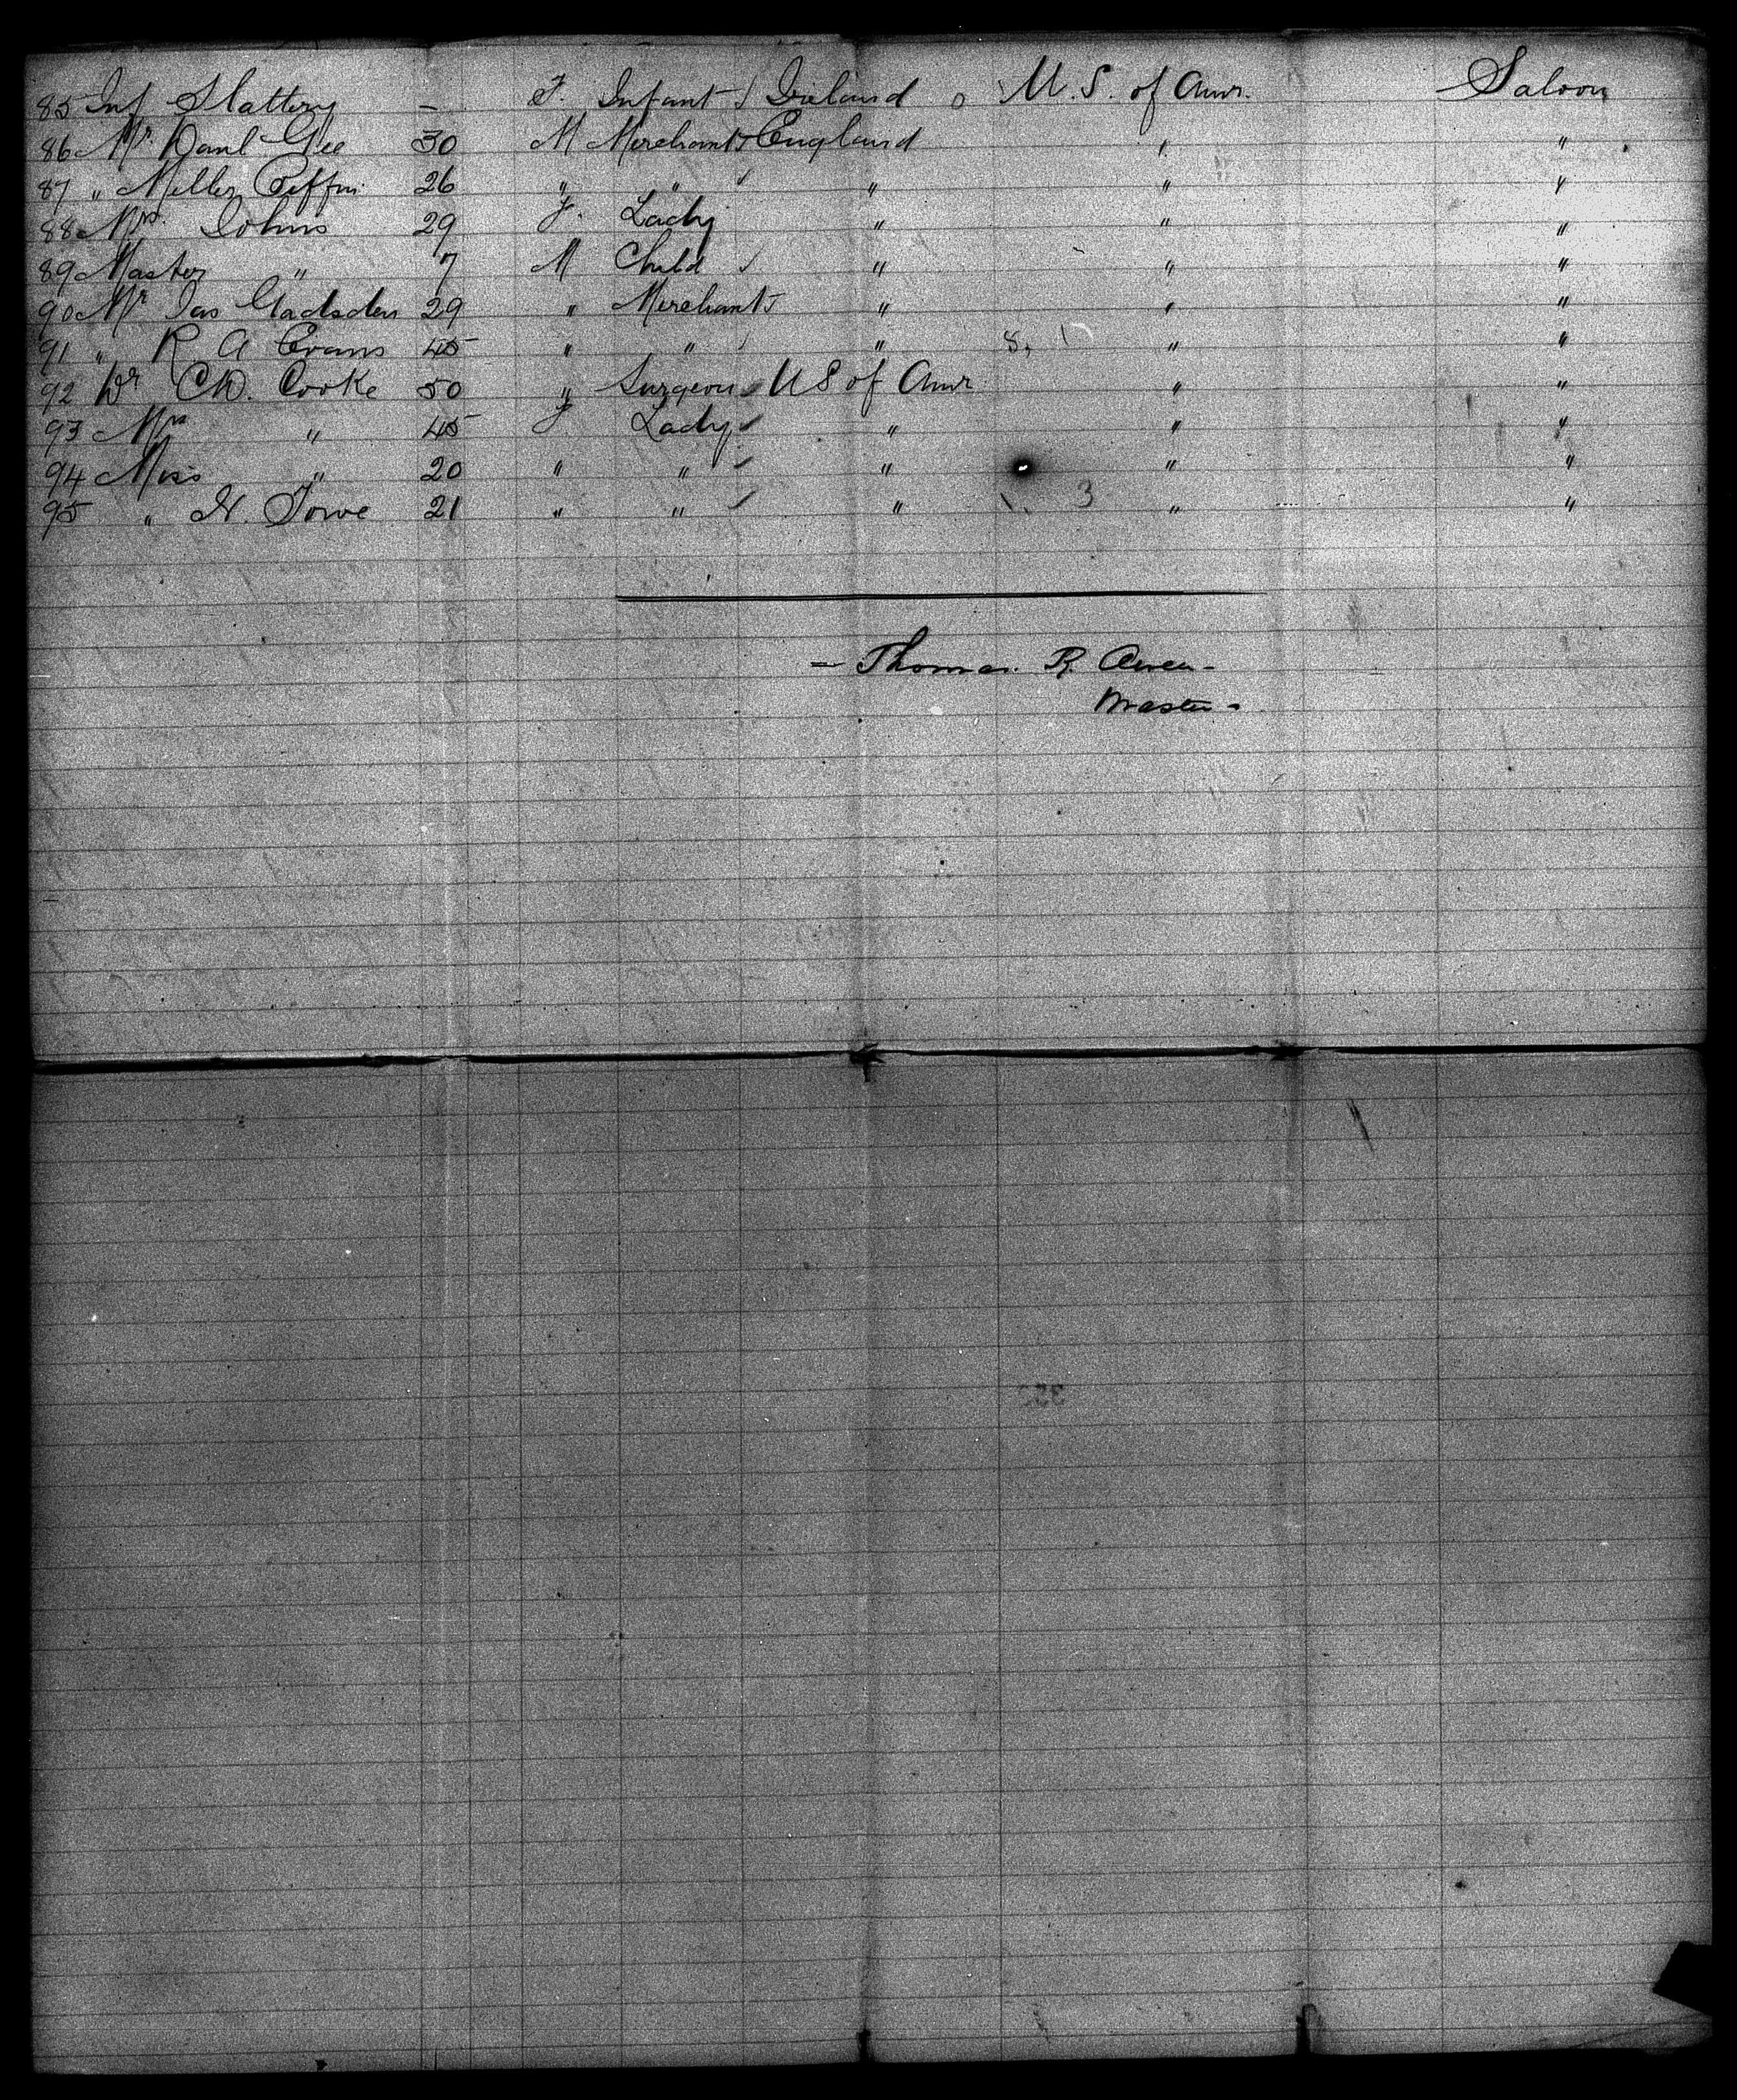 85 Inf Slattery - F. Infant Ireland U.S. of Amr. Saloon
86 Mr. Danl Gee 30 M Merchant England " "
87 " Miller 26 " " " " "
88 Mrs. Johns 29 F. Lady " " "
89 Master " 7 M Child " " "
90 Mr Jas Gadsden 29 " Merchant " " "
91 " R A Evans 45 " " " 8, 1 " "
92 Dr C.D. Cooke 50 " Surgeon U S of Amr " "
93 Mrs " 45 F Lady " " "
94 Miss " 20 " " " " "
95 " H. Towe 21 " " " 1. 3 " "
- Thomas. R.
Master -